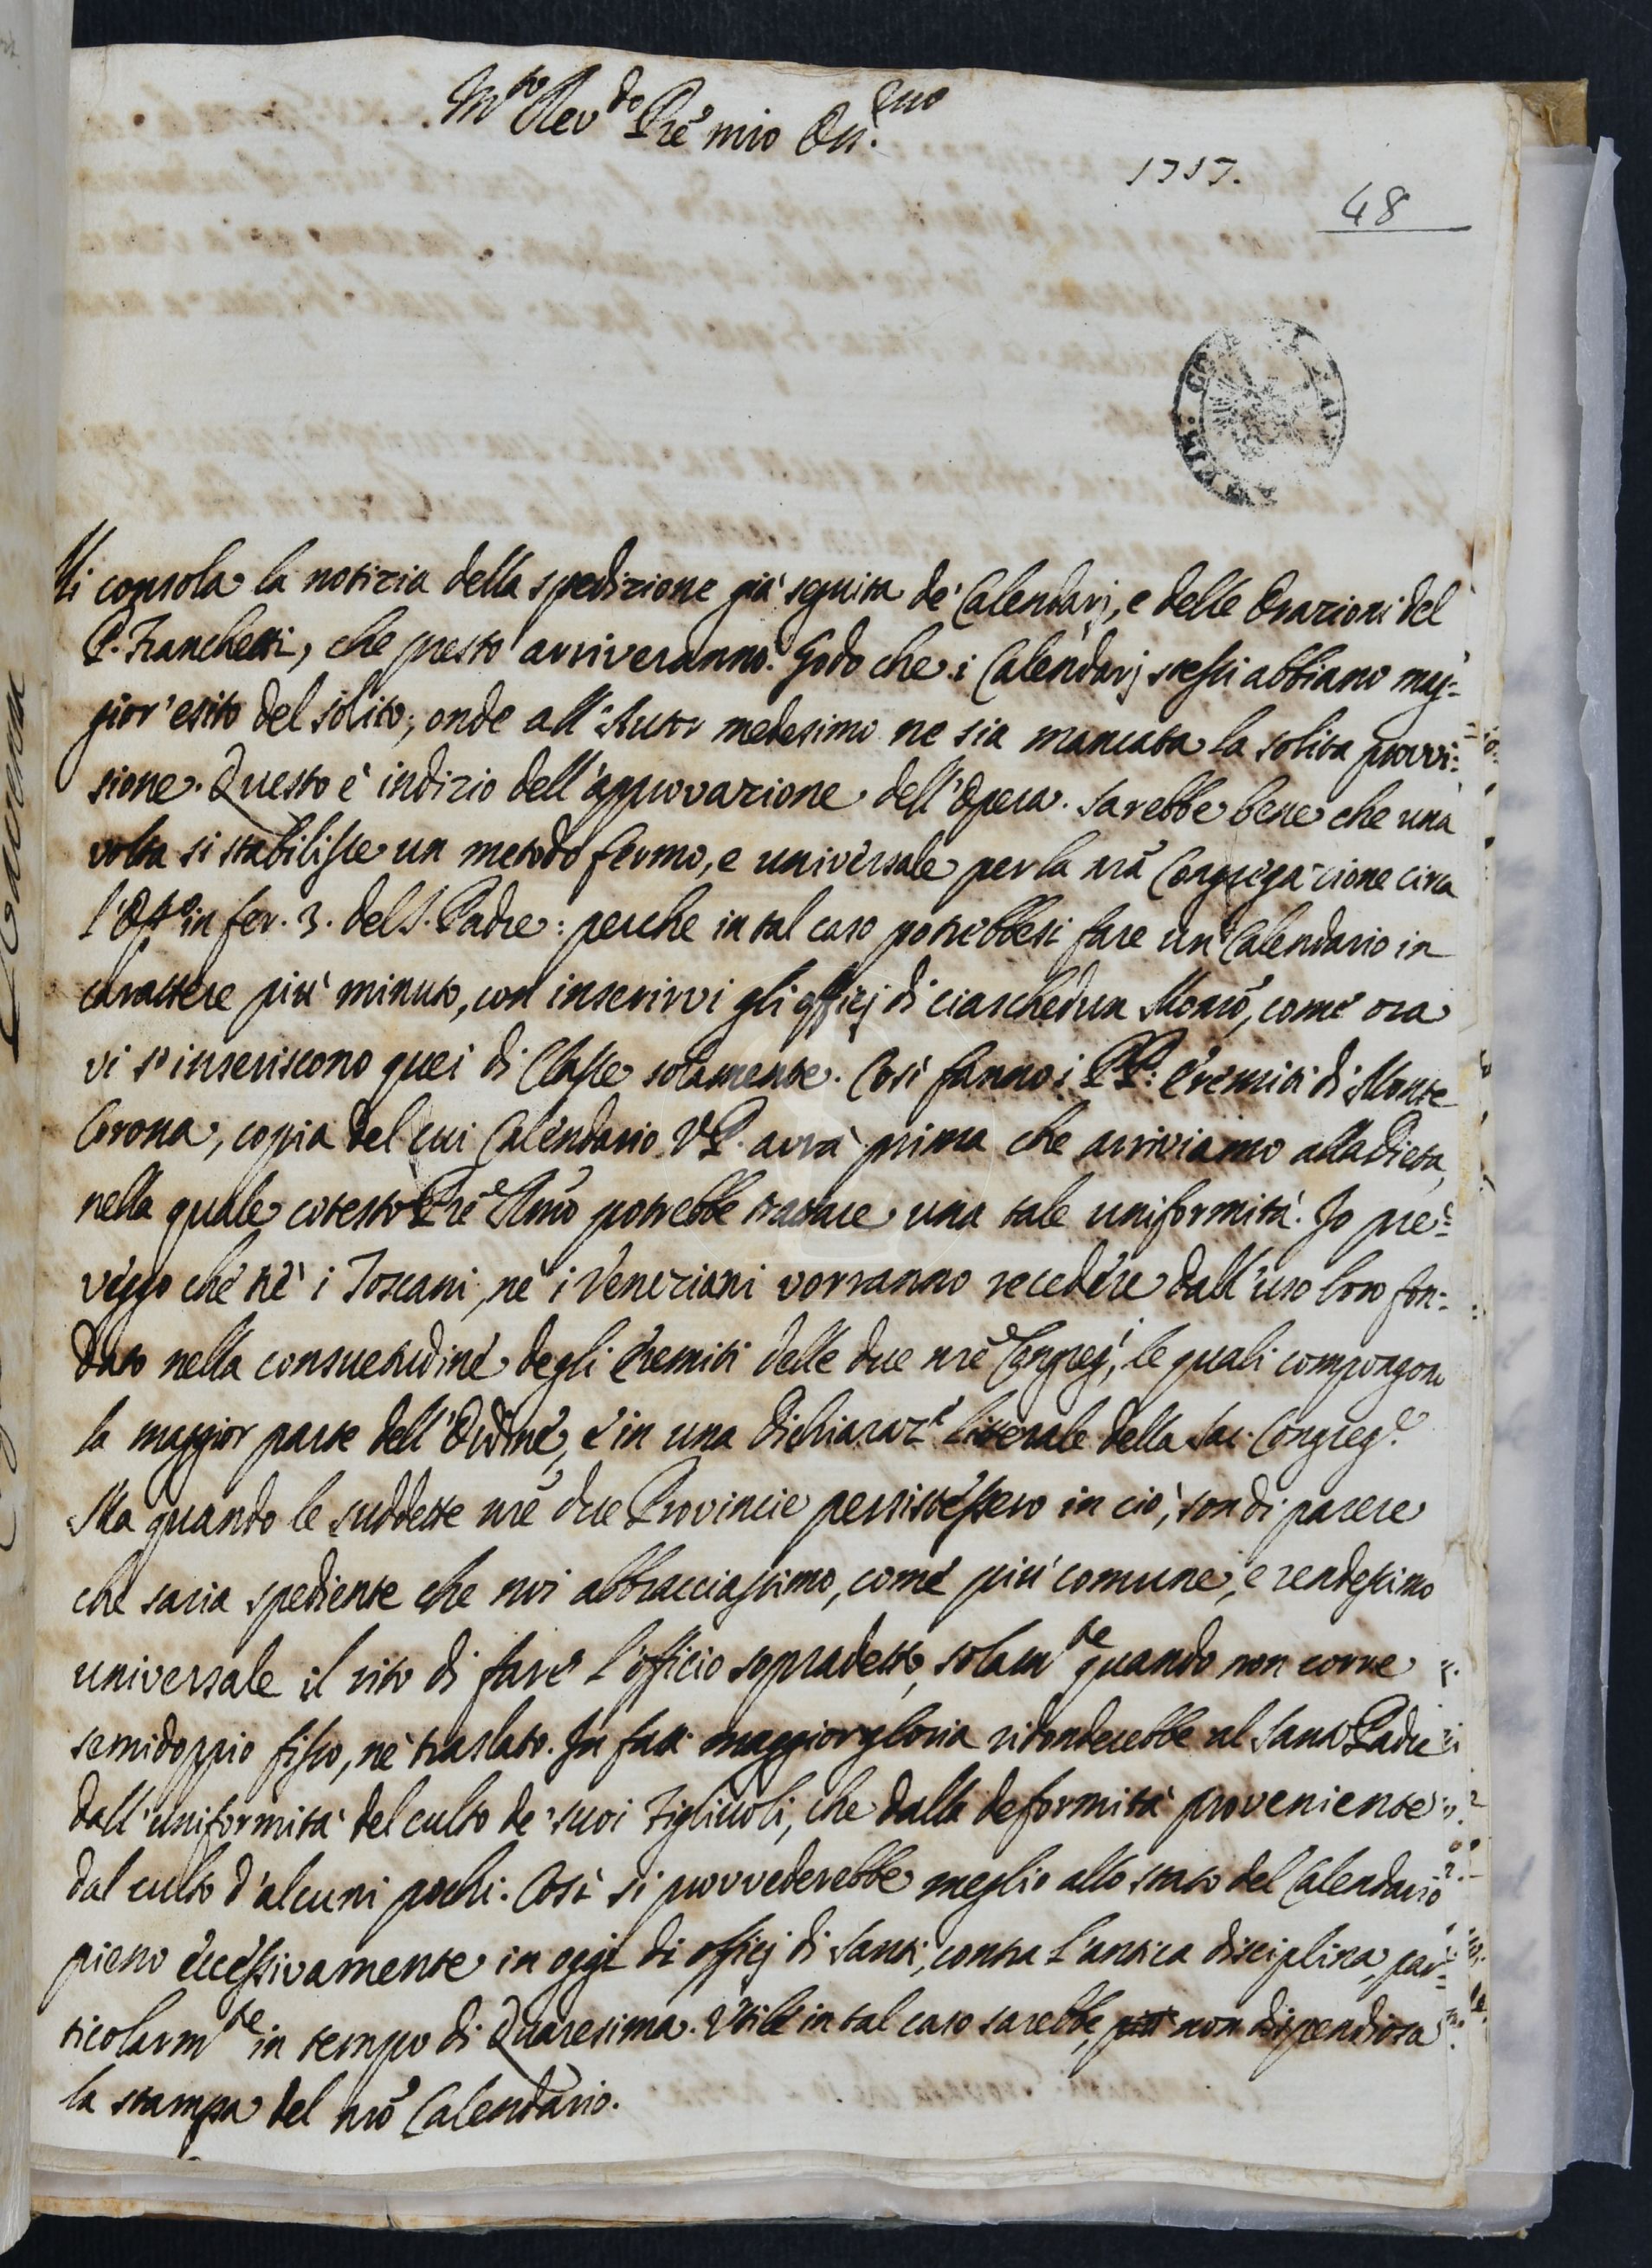 M.to Rev.do Prē mio Oss.mo
1717.
48
Mi consola la notizia della spedizione già seguita de' Calendarj, e delle Orazioni del
P. Franchetti, che presto arriveranno. Godo che i Calendarj stessi abbiano mag=
gior' esito del solito; onde all'Autor medesimo ne sia mancata la solita provvi=
sione. Questo è indizio dell'approvazione dell'Opera. Sarebbe bene che una
volta si stabilisse un metodo fermo, e universale per la nrā Congregazione circa
l'Off.o in fer. 3. del S. Padre: perche in tal caso potrebbesi fare un Calendario in
carattere più minuto, con inserirvi gli officj di ciaschedun Monrō, come ora
vi s'inseriscono quei di Classe solamente. Così fanno i PP: Eremiti di Monte
Corona, copia del cui Calendario V.P. avrà prima che arriviamo alla Dieta,
nella quale cotesto Prē Rmō potrebbe trattare una tale uniformità. Io pre=
veggo che nè i Toscani, nè i Veneziani vorranno recedere dall'uso loro fon=
dato nella consuetudine degli Eremiti delle due nrē Congreg.i, le quali compongono
la maggior parte dell'Ordine, e in una dichiaraz.e litterale della Sac. Congreg.e
Ma quando le suddette nrē due Provincie persistessero in ciò, son di parere
che saria spediente che noi abbracciassimo, come più comune, e rendessimo
universale il rito di fare l'officio sopradetto, solam.te quando non corre
semidoppio fisso, nè traslato. In fatti maggior gloria ridonderebbe al Santo Padre
dall'uniformità del culto de' suoi Figliuoli, che dalla deformità proveniente
dal culto d'alcuni pochi. Così si provvederebbe meglio allo stato del Calendario
pieno eccessivamente in oggi di officj di Santi, contra l'antica disciplina, par=
ticolarm.te in tempo di Quaresima. Utile in tal caso sarebbe, non dispendiosa
la stampa del nrō Calendario.